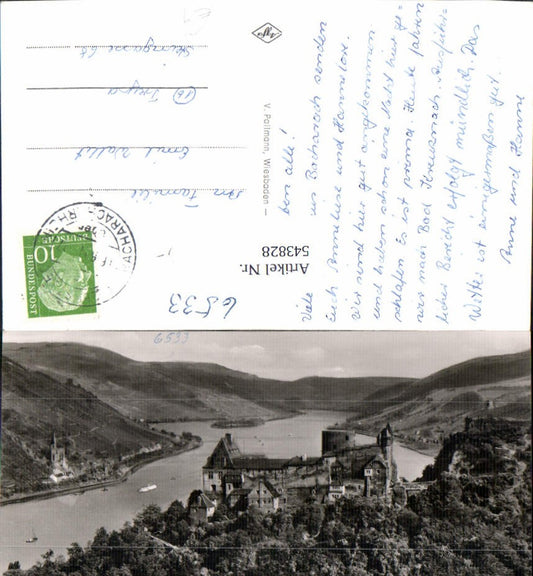 Ihr Lieben alle!
Viele
aus Bacharach senden
Euch Anneliese und Hannelore.
Wir sind hier gut angekommen
und haben schon eine Nacht hier ge-
schlafen. Es ist prima. Heute fahren
wir nach Bad Kreuznach. Ausführ-
licher Bericht erfolgt mündlich. Das
Wetter ist einigermaßen gut.
Anne und Hanne
V. Pollmann, Wiesbaden
Agfa
An
Familie
Emil
(16)
Steingasse 68
BACHARACH
10
DEUTSCHE
BUNDESPOST
Artikel Nr.
543828
6533
6533